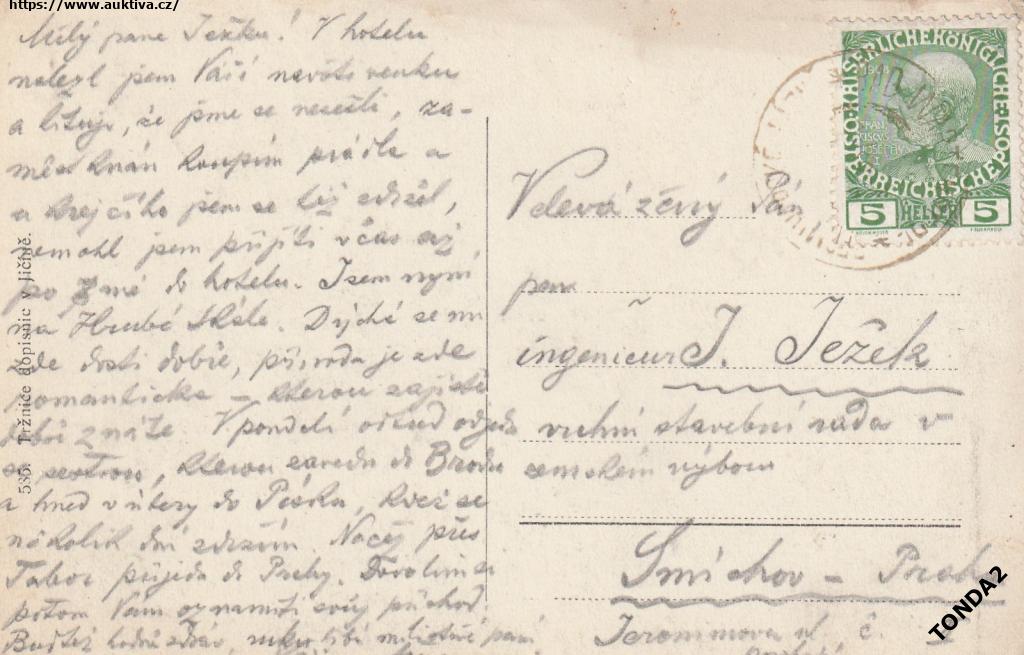 https://www.auktiva.cz/
Milý pane Ježku! V hotelu
nalezl jsem Vaši navštívenku
a lituji, že jsme se nesešli, za-
městknán koupím prádla a
u krejčího jsem se též zdržel,
nemohl jsem přijíti včas až
po do hotelu. Jsem nyní
na Hrubé Skále. Dýchá se mi
zde dosti dobře, příroda je zde
romantická – kterou zajisté
dobře znáte. V pondělí odtud odjedu
se sestrou, kterou zavedu do Brodu
a hned v úterý do Písku, kdež se
několik dní zdržím. Načež přes
Tabor přijedu do Prahy. Dovolím si
potom Vám oznámiti svůj příchod.
Buďtež
535. Tržnice dopisnic v Jičíně.
KAISERLICHE KÖNIGLICHE
ÖSTERREICHISCHE POST
5 HELLER 5
Velevážený Pán
pan
ingenieur J. Ježek
vrchní stavební rada v
zemském výboru
Smíchov – Praha
Jeronymova ul. č.
TONDA2